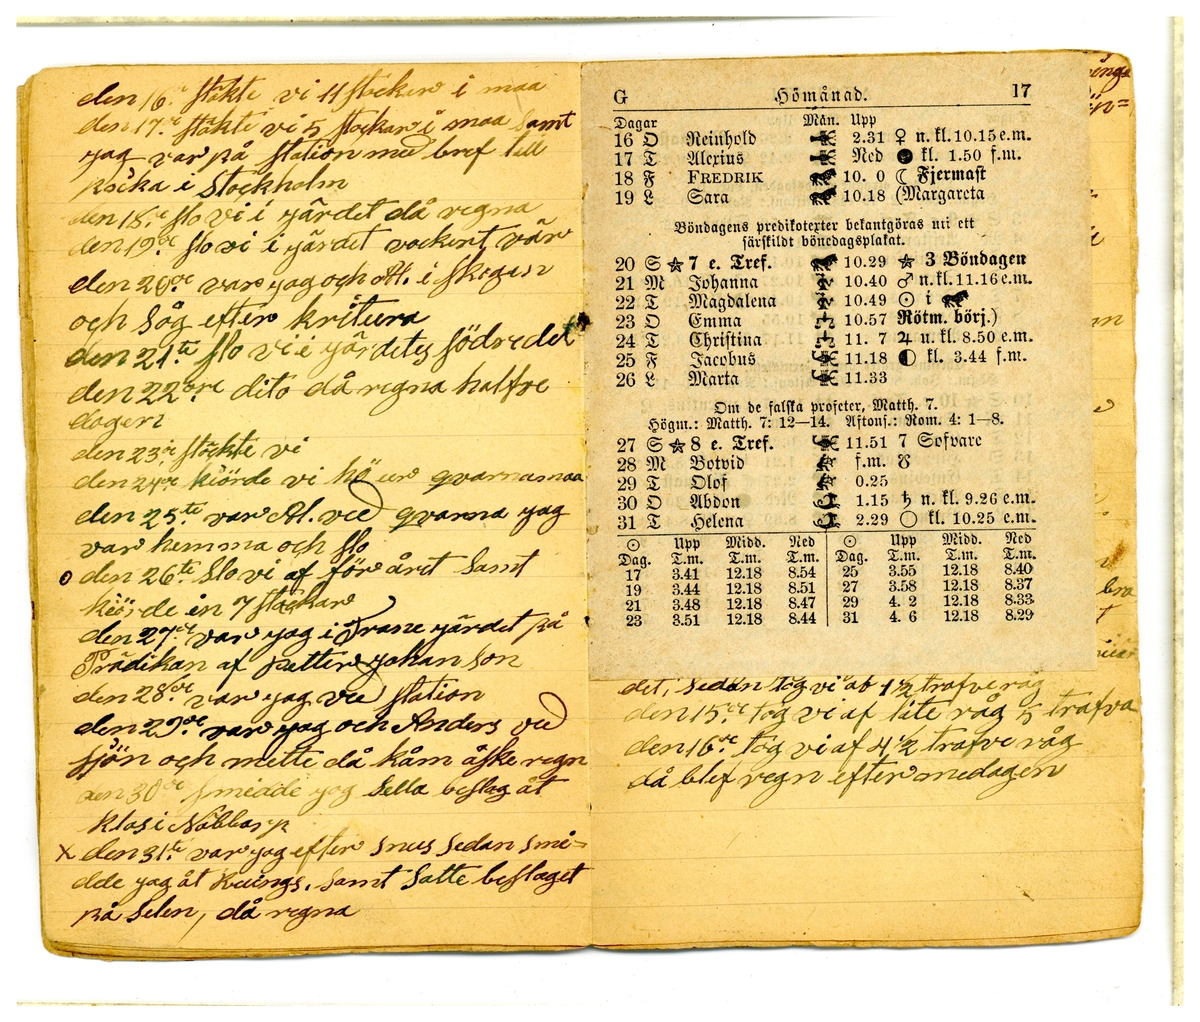 den 16.de stäkte vi 11 stocker i maa
den 17.de stäkte vi 5 stockar i maa samt
jag var på station med bref till
i Stockholm
den 18.de slo vi i gärdet då regna
den 19.de slo vi i gärdet vackert vär
den 20.de var jag och Al. i skogen
och såg efter kritura
den 21.te slo vi i gärdetes södredel
den 22.dre dito då regna halfre
dagen
den 23.i stäckte vi
den 24.de kiörde vi hö ur qvarnamaa
den 25.te var Al. ved qvarna jag
var hemma och slo
den 26.te slo vi af för året samt
kiörde in 7 stäckar
den 27.de var jag i Trane gärdet på
Prädikan af Petter Johan son
den 28.de var jag ved station
den 29.de var jag och Anders ved
sjön och mette då kåm åske regn
den 30.de smidde jag Sella beslag åt
klas i Nabbarp
x den 31.te var jag efter snus sedan smi-
dde jag åt samt Satte beslaget
på Selen, då regna
G Hömånad. 17
Dagar Mån. Upp
16 O Reinhold 2.31 ♀ n. kl. 10.15 e.m.
17 T Alexius Ned ● kl. 1.50 f.m.
18 F FREDRIK 10. 0 ☾ Fjermast
19 L Sara 10.18 (Margareta
Böndagens predikotexter bekantgöras uti ett
särskildt bönedagsplakat.
20 S ☆ 7 e. Tref. 10.29 ☆ 3 Böndagen
21 M Johanna 10.40 ♂ n. kl. 11.16 e.m.
22 T Magdalena 10.49 ☉ i ♌
23 O Emma 10.57 Rötm. börj.)
24 T Christina 11. 7 ♃ n. kl. 8.50 e.m.
25 F Jacobus 11.18 ◐ kl. 3.44 f.m.
26 L Marta 11.33
Om de falska profeter, Matth. 7.
Högm.: Matth. 7: 12—14. Aftons.: Rom. 4: 1—8.
27 S ☆ 8 e. Tref. 11.51 7 Sofvare
28 M Botvid f.m. ☋
29 T Olof 0.25
30 O Abdon 1.15 ♄ n. kl. 9.26 e.m.
31 T Helena 2.29 ○ kl. 10.25 e.m.
☉ Upp Midd. Ned ☉ Upp Midd. Ned
Dag. T.m. T.m. T.m. Dag. T.m. T.m. T.m.
17 3.41 12.18 8.54 25 3.55 12.18 8.40
19 3.44 12.18 8.51 27 3.58 12.18 8.37
21 3.48 12.18 8.47 29 4. 2 12.18 8.33
23 3.51 12.18 8.44 31 4. 6 12.18 8.29
det, sedan tog vi af 1½ trafve råg
den 15.de tog vi af lite råg 5 trafva
den 16.de tog vi af 4½ trafve råg
då blef regn efter medagen